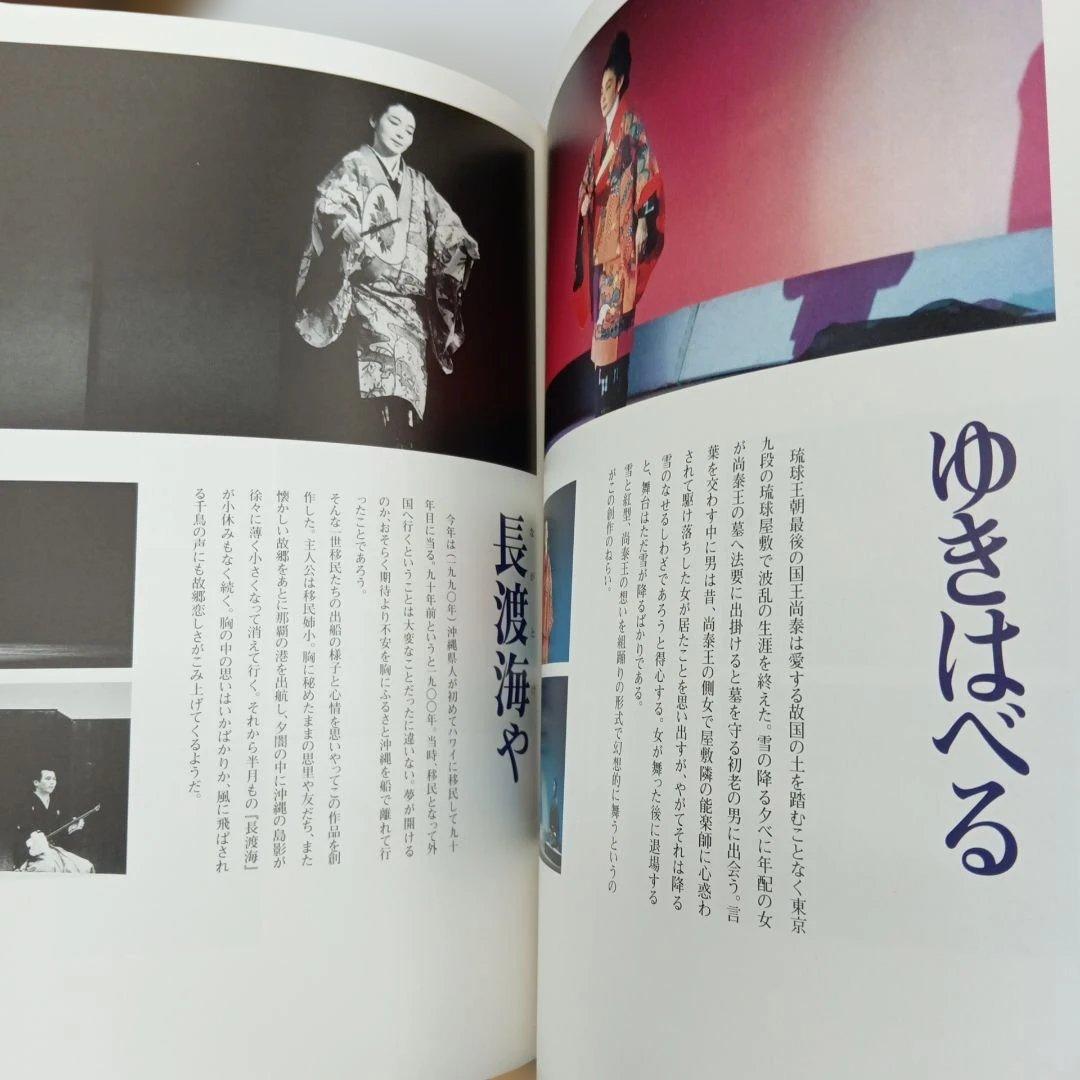 ゆきはべる
琉球王朝最後の国王尚泰は愛する故国の土を踏むことなく東京
九段の琉球屋敷で波乱の生涯を終えた。雪の降る夕べに年配の女
が尚泰王の墓へ法要に出掛けると墓を守る初老の男に出会う。言
葉を交わす中に男は昔、尚泰王の側女で屋敷隣の能楽師に心惑わ
されて駆け落ちした女が居たことを思い出すが、やがてそれは降る
雪のなせるしわざであろうと得心する。女が舞った後に退場する
と、舞台はただ雪が降るばかりである。
雪と紅型、尚泰王の想いを組踊りの形式で幻想的に舞うというの
がこの創作のねらい。
長渡海や
今年は(一九九〇年)沖縄県人が初めてハワイに移民して九十
年目に当る。九十年前というと一九〇〇年。当時、移民となって外
国へ行くということは大変なことだったに違いない。夢が開ける
のか、おそらく期待より不安を胸にふるさと沖縄を船で離れて行
ったことであろう。
そんな一世移民たちの出船の様子と心情を思いやってこの作品を創
作した。主人公は移民姉小。胸に秘めたままの思里や友だち、また
懐かしい故郷をあとに那覇の港を出航し、夕闇の中に沖縄の島影が
徐々に薄く小さくなって消えて行く。それから半月もの『長渡海』
が小休みもなく続く。胸の中の思いはいかばかりか、風に飛ばされ
る千鳥の声にも故郷恋しさがこみ上げてくるようだ。